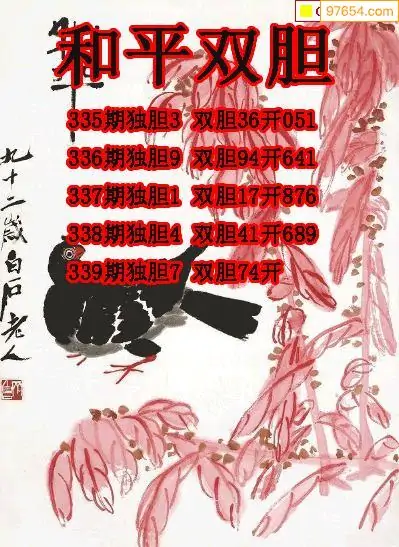 97654.com
和平双胆
335期独胆3 双胆36开051
336期独胆9 双胆94开641
337期独胆1 双胆17开876
338期独胆4 双胆41开689
339期独胆7 双胆74开
九十二岁白石老人